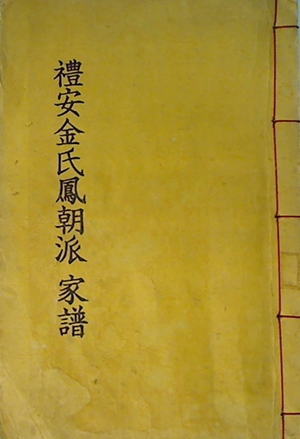 禮安金氏鳳朝派 家譜